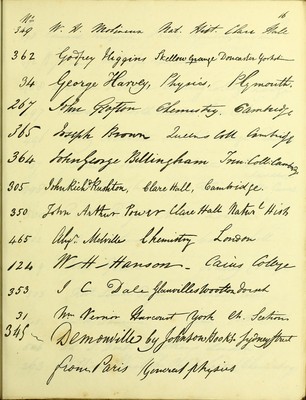 16
No.
349 W. H. Molineux Nat. Hist Clare Hall
362 Godfrey Higgins Skellow Grange Doncaster Yorksh
34 George Harvey, Physics, Plymouth.
267 John Chemistry, Cambridge
565 Joseph Brown Queens Coll Cambridge
364 John George Billingham Trin. Coll. Cambrid
305 John Richd. Rushton, Clare Hall, Cambridge.
350 John Arthur Power Clare Hall Natul. Hist
465 Melville Chemistry London
124 W H Hanson - Caius College
353 J C Dale Glanvilles Wootton Dorset
31 Wm Vernon Harcourt York Ch. Section
345 - Demonville by Johnson Bookr. Sydney Street
from Paris General physics